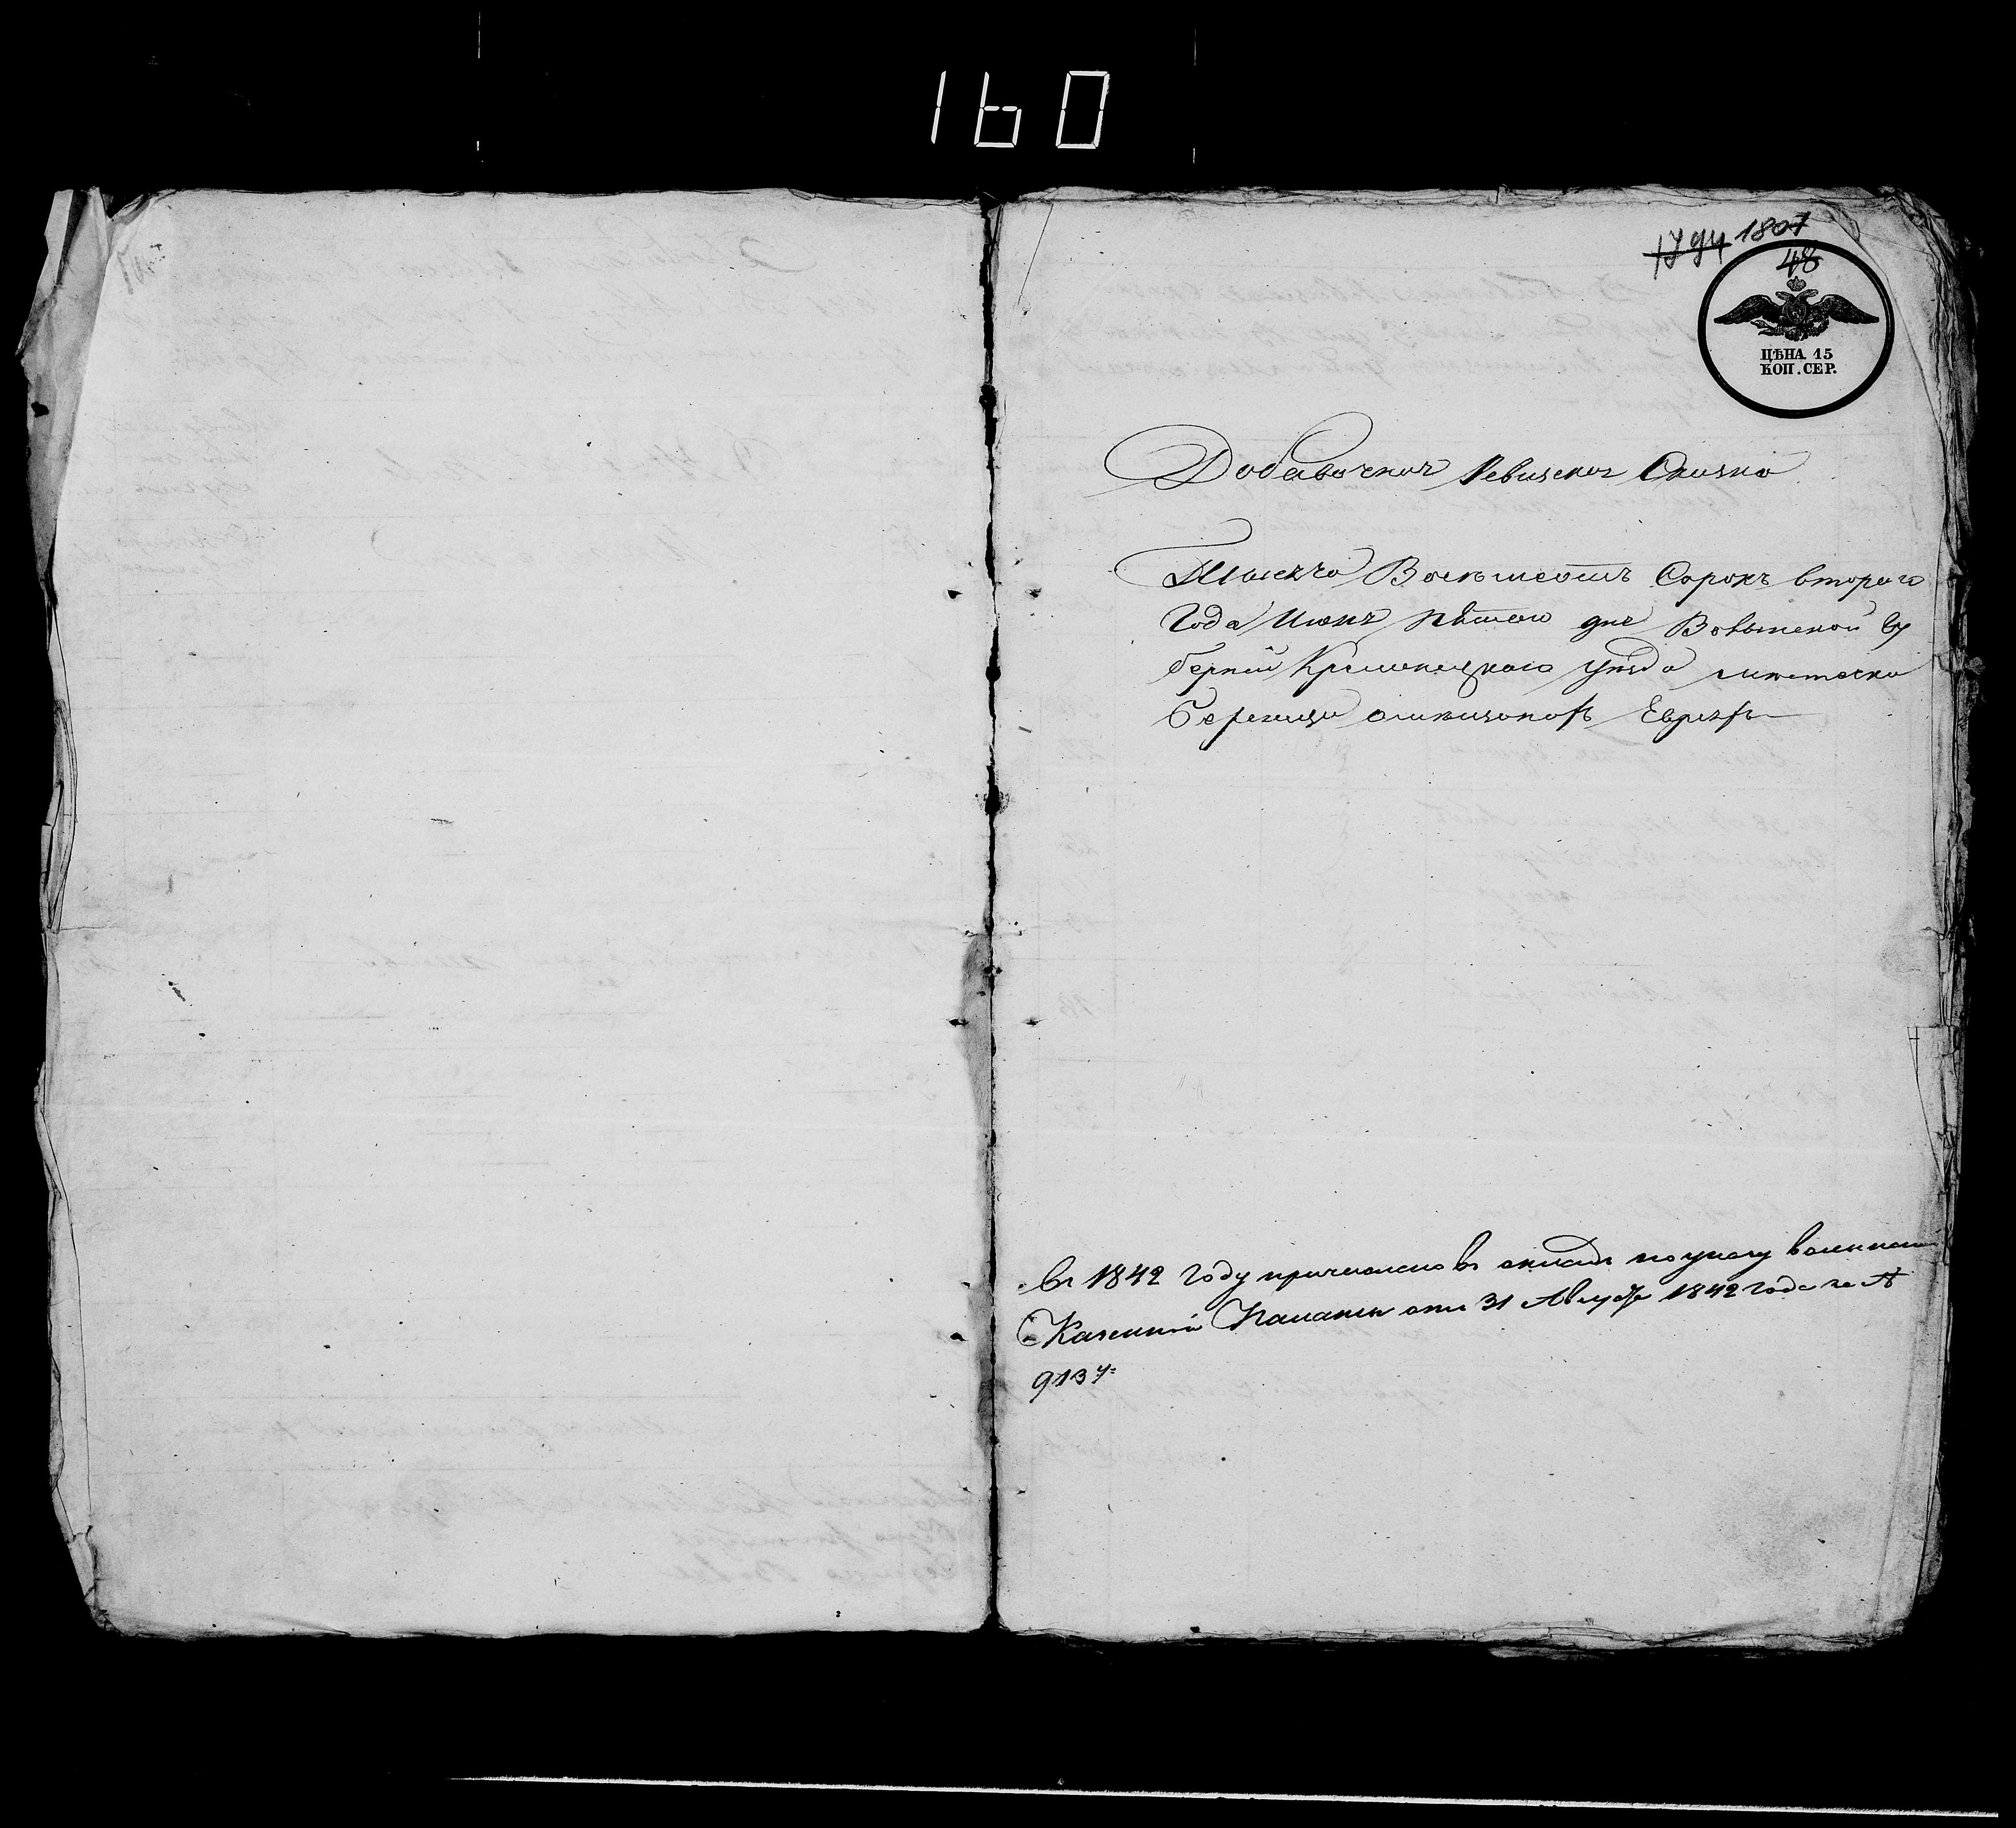 160
1794 1801
48
ЦѢНА 15
КОП. СЕР.
Добавочная Ревизская Сказка
Тысяча Восѣмсотъ Сорокъ втораго
Года Июня дня Волынской Гу
бернии Кременецкаго уѣзда мѣстечка
Бережца Евреяхъ
въ 1842 году причислено въ окладъ по указу волынской
Казенной Палаты отъ 31 Августа 1842 года за №
9134